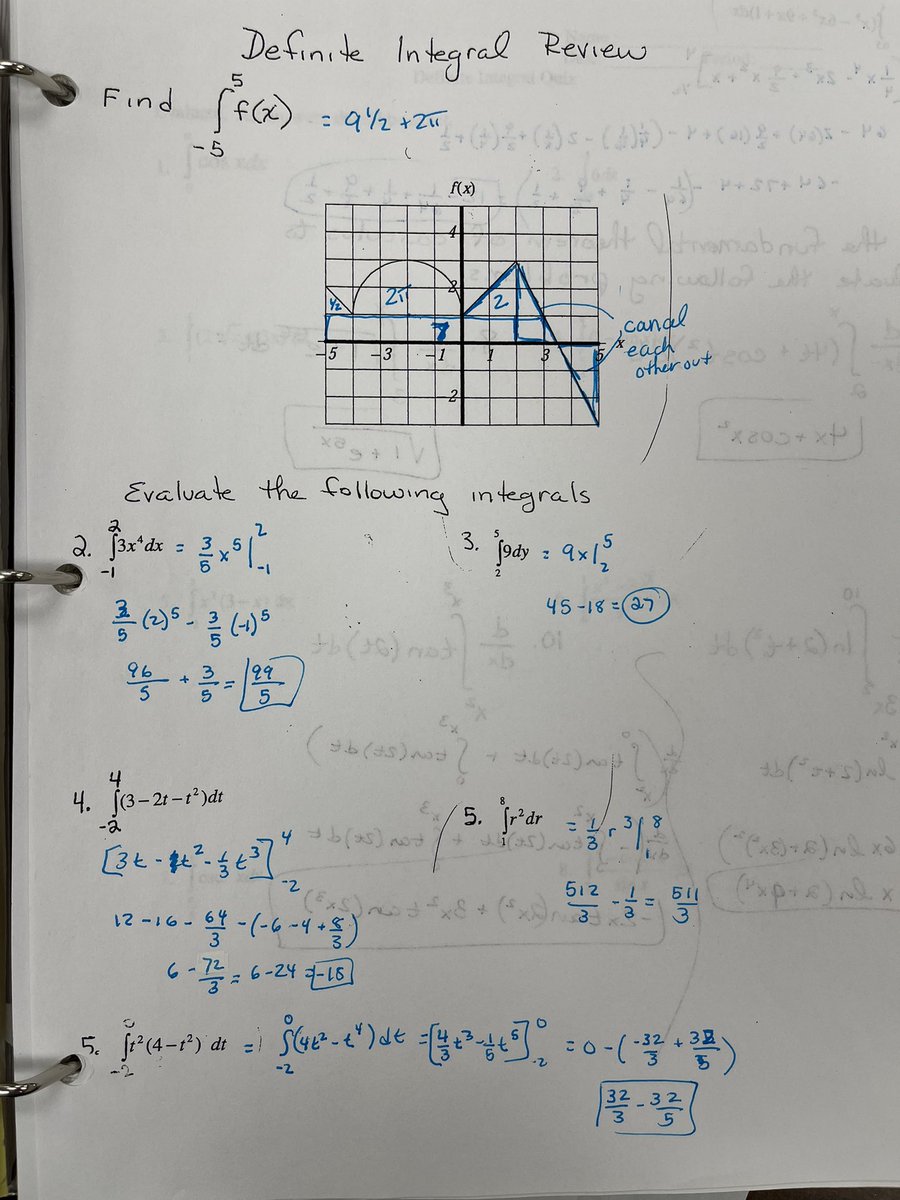 Definite Integral Review
Find ∫_{-5}^{5} f(x) = 9 1/2 + 2π
f(x)
4
2
1/2 2π 2
7
-5 -3 -1 1 3 5 x
2
cancel
each
other out
Evaluate the following integrals
2. ∫_{-1}^{2} 3x⁴ dx = 3/5 x⁵ |_{-1}^{2}
3/5 (2)⁵ - 3/5 (-1)⁵
96/5 + 3/5 = 99/5
3. ∫_{2}^{5} 9dy = 9x|_{2}^{5}
45 - 18 = 27
4. ∫_{-2}^{4} (3 - 2t - t²)dt
[3t - t² - 1/3 t³]_{-2}^{4}
12 - 16 - 64/3 - (-6 - 4 + 8/3)
6 - 72/3 = 6 - 24 = -18
5. ∫_{1}^{8} r² dr = 1/3 r³ |_{1}^{8}
512/3 - 1/3 = 511/3
5. ∫_{-2}^{0} t²(4 - t²) dt = ∫_{-2}^{0} (4t² - t⁴) dt = [4/3 t³ - 1/5 t⁵]_{-2}^{0} = 0 - (-32/3 + 32/5)
32/3 - 32/5